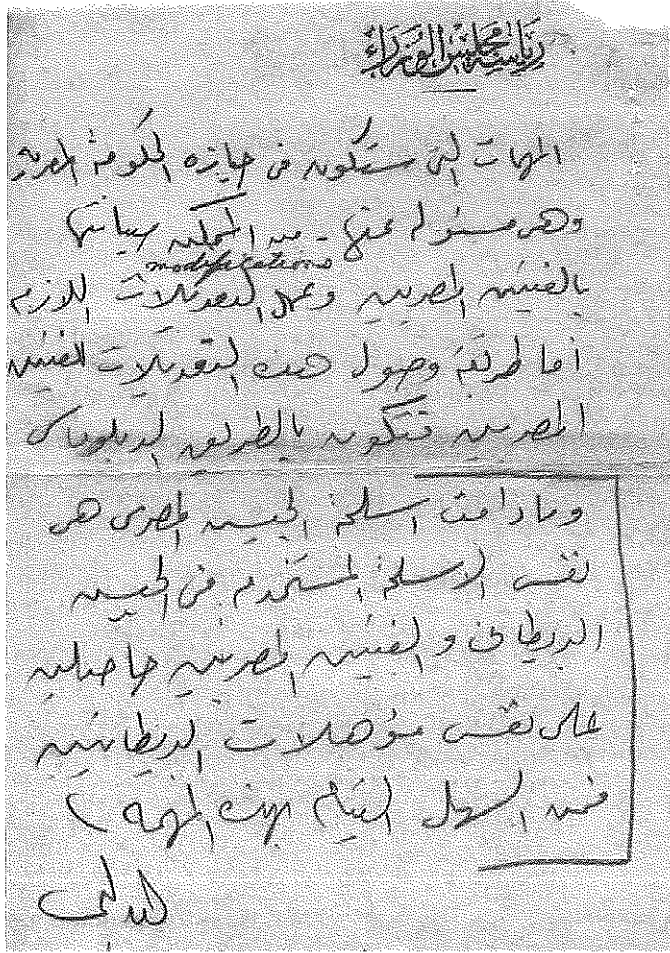 رياسة مجلس الوزراء
المهمات التى ستكون فى حيازه الحكومة المصرية
وهى مسئوله عنها - من الممكن صيانتها
modifications
بالفنيين المصريين وعمل التعديلات اللازم
أما طريقة وصول هذه التعديلات للفنيين
المصريين فتكون بالطريق الدبلوماسى
وما دامت اسلحة الجيش المصرى هى
نفس الاسلحة المستخدم فى الجيش
البريطانى و الفنيين المصريين حاصلين
على نفس مؤهلات البريطانيين
فمن السهل القيام بهذه المهمة )